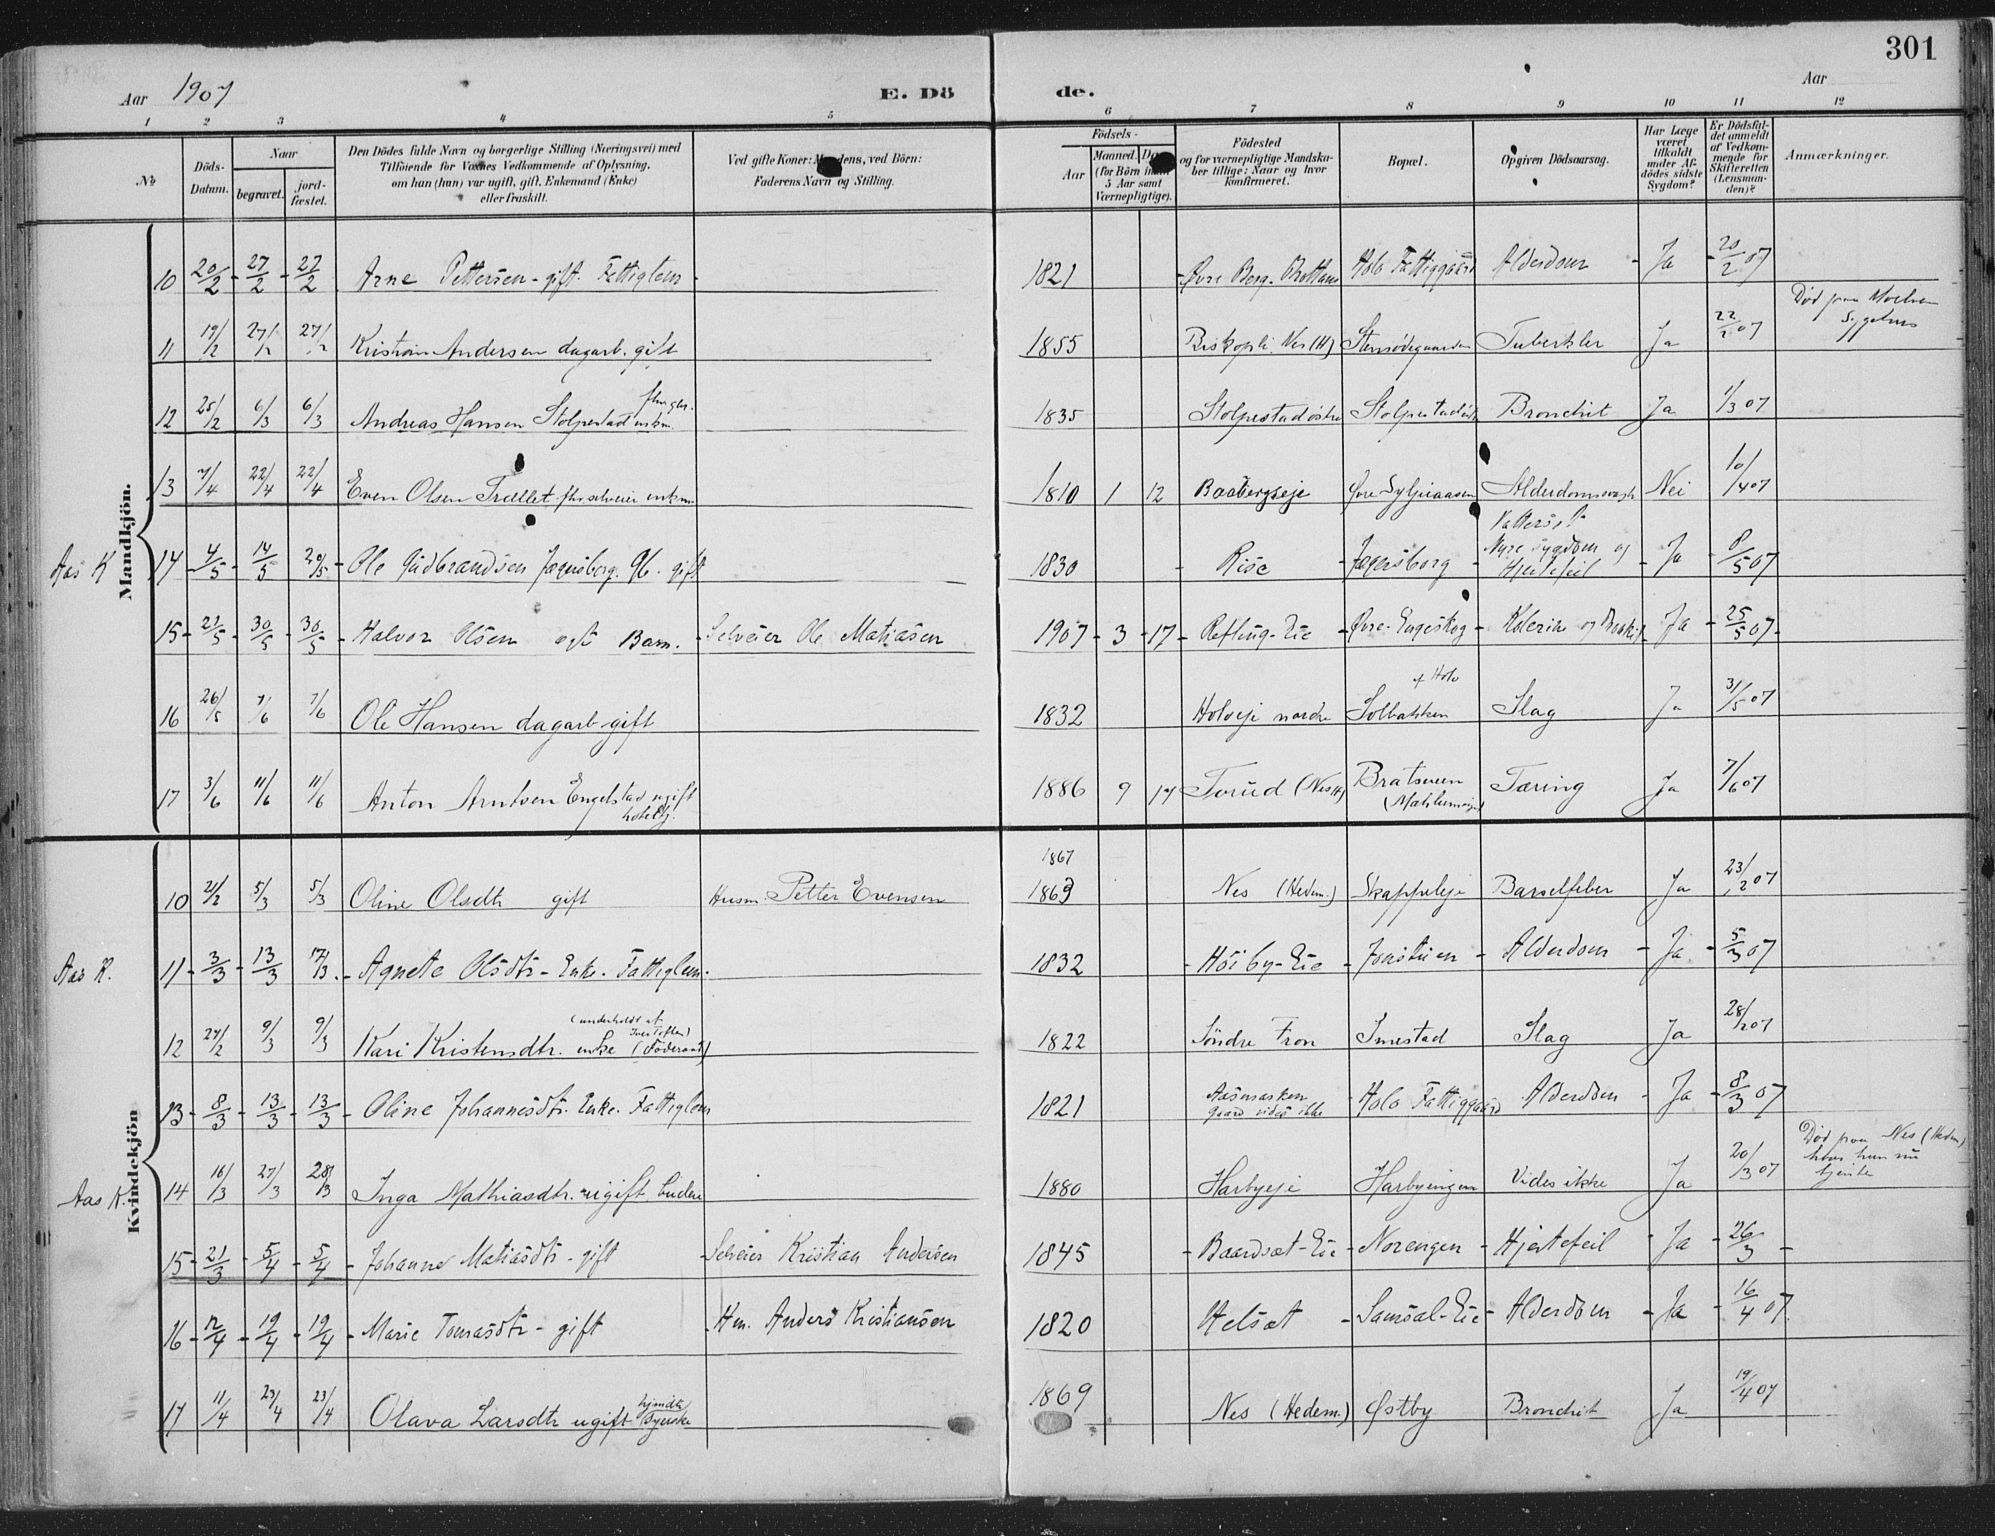 301
Aar 1907
E. Dö
de.
Aar
1 2 3 4 5 6 7 8 9 10 11 12
№
Döds-
Datum.
Naar
begravet.
jord-
fæstet.
Den Dödes fulde Navn og borgerlige Stilling (Næringsvei) med
Tilföiende for Voxnes Vedkommende af Oplysning,
om han (hun) var ugift, gift, Enkemand (Enke)
eller fraskilt.
Ved gifte Koner: Mandens, ved Börn:
Faderens Navn og Stilling.
Födsels-
Aar
Maaned. Dag
(for Börn inden
5 Aar samt
Værnepligtige).
Födested
og for værnepligtige Mandska-
ber tillige: Naar og hvor
konfirmeret.
Bopæl.
Opgiven Dödsaarsag.
Har Læge
været
tilkaldt
under Af-
dödes sidste
Sygdom?
Er Dödsfal-
det anmeldt
af Vedkom-
mende for
Skifteretten
(Lensman-
den)?
Anmærkninger.
Mandkjön.
10 20/2 - 27/2 - 27/2 Arne Pettersen - gift Fattiglem - 1821 - Øvre Berg - Holo Fattiggaard Alderdom - Ja - 20/2 07
11 19/2 27/2 27/2 Kristian Andersen dagarb. gift 1855 Biskopli Nes (H) Stensödegaarden Tuberkler Ja 22/2 07 Død paa
12 25/2 6/3 6/3 Andreas Hansen Stolpestad enkm. 1835 Stolpestad østre Stolpestad Bronchit Ja 1/3 07
13 7/4 22/4 22/4 Even Olsen Trællet fhv. selveier enkm. 1810 1 12 Baabergseie Øvre Alderdomssvagh Nei 10/4 07
Aas K 14 4/5 - 14/5 20/5 - Ole Gudbrandsen Jægersberg. Gb. gift 1830 - Rise - Jægersborg - Vattersot Nyresygdom og Hjertefeil - Ja - 8/5 07
15 - 21/5 - 30/5 - 30/5 - Halvor Olsen Barn. - Selveier Ole Matiasen 1907 - 3 - 17 - Refling-Eie - Øvre Engeskog - Kolerine og - Ja - 25/5 07 -
16 26/5 7/6 7/6 Ole Hansen dagarb. gift 1832 Holoeje nordre Solbakken Slag Ja 31/5 07
17 3/6 11/6 11/6 Anton Arntsen Engelstad ugift 1886 9 17 Torud (Nes H) Bratsveen Tæring Ja 7/6 07
Kvindekjön
10 21/2 5/3 5/3 Oline Olsdtr gift Husm. Petter Evensen 1867 1863 Nes (Hedem.) Skappeleje Barselfeber Ja 23/2 07
Aas K. 11 - 3/3 - 13/3 17/3 - Agnete Olsdtr - Enke. Fattiglem - 1832 - Höiby-Eie - - Alderdom - Ja - 5/3 07
12 27/2 9/3 9/3 Kari Kristensdtr. enke (Föderaad) (underholdt af Iver Toften) 1822 Söndre Fron Imestad Slag Ja 28/2 07
13 - 8/3 - 13/3 - 13/3 - Oline Johannesdtr. Enke. Fattiglem 1821 Aasmarken Gaard vides ikke - Holo Fattiggaard Alderdom - Ja - 8/3 07
Aas K. 14 16/3 27/3 28/3 Inga Mathiasdtr. ugift budeie 1880 Harbyeje Harbyengen Vides ikke Ja 20/3 07 Død paa Nes (Hedm) hvor hun nu tjente
15 - 21/3 - 5/4 - 5/4 - Johanne Matiasdtr - gift - Selveier Kristian Andersen 1845 - Baardsæt-Eie - Norengen - Hjertefeil - Ja - 26/3 -
16 - 12/4 - 19/4 - 19/4 - Marie Tomasdtr - gift - Hm. Anders Kristiansen 1820 Helsæt - Samsal-Eie - Alderdom - Ja - 16/4 07
17 11/4 23/4 23/4 Olava Larsdtr ugift 1869 Nes (Hedem.) Østby Bronchit Ja 19/4 07